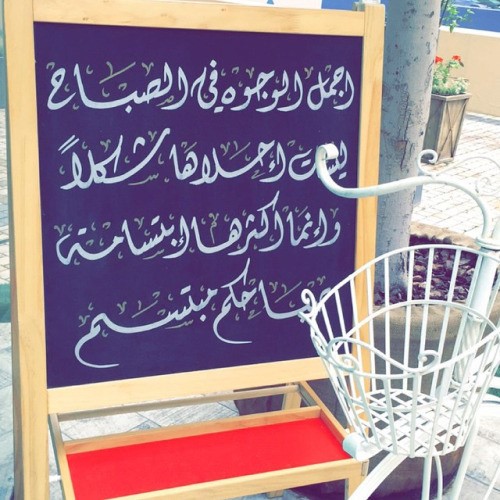 اجمل الوجوه في الصباح
ليست إحلاها شكلاً
وإنما أكثرها إبتسامة
صباحكم مبتسم